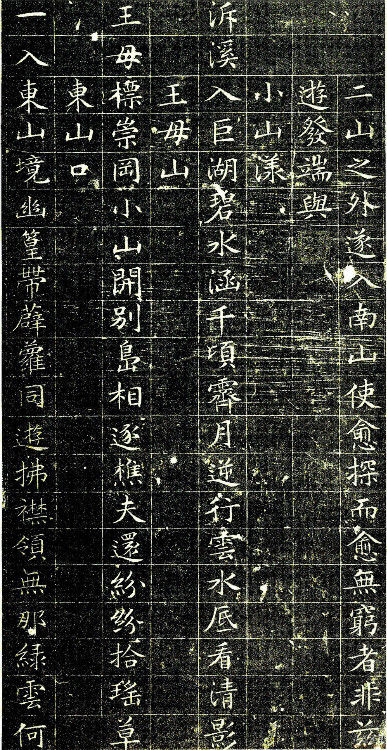 二山之外遂入南山使愈探而愈無窮者非茲
遊發端與
小山漾
泝溪入巨湖碧水涵千頃霽月逆行雲水底看清影
王母山
王母標崇岡小山開別島相逐樵夫還紛紛拾瑤草
東山口
一入東山境幽篁帶薜蘿同遊拂襟領無那綠雲何